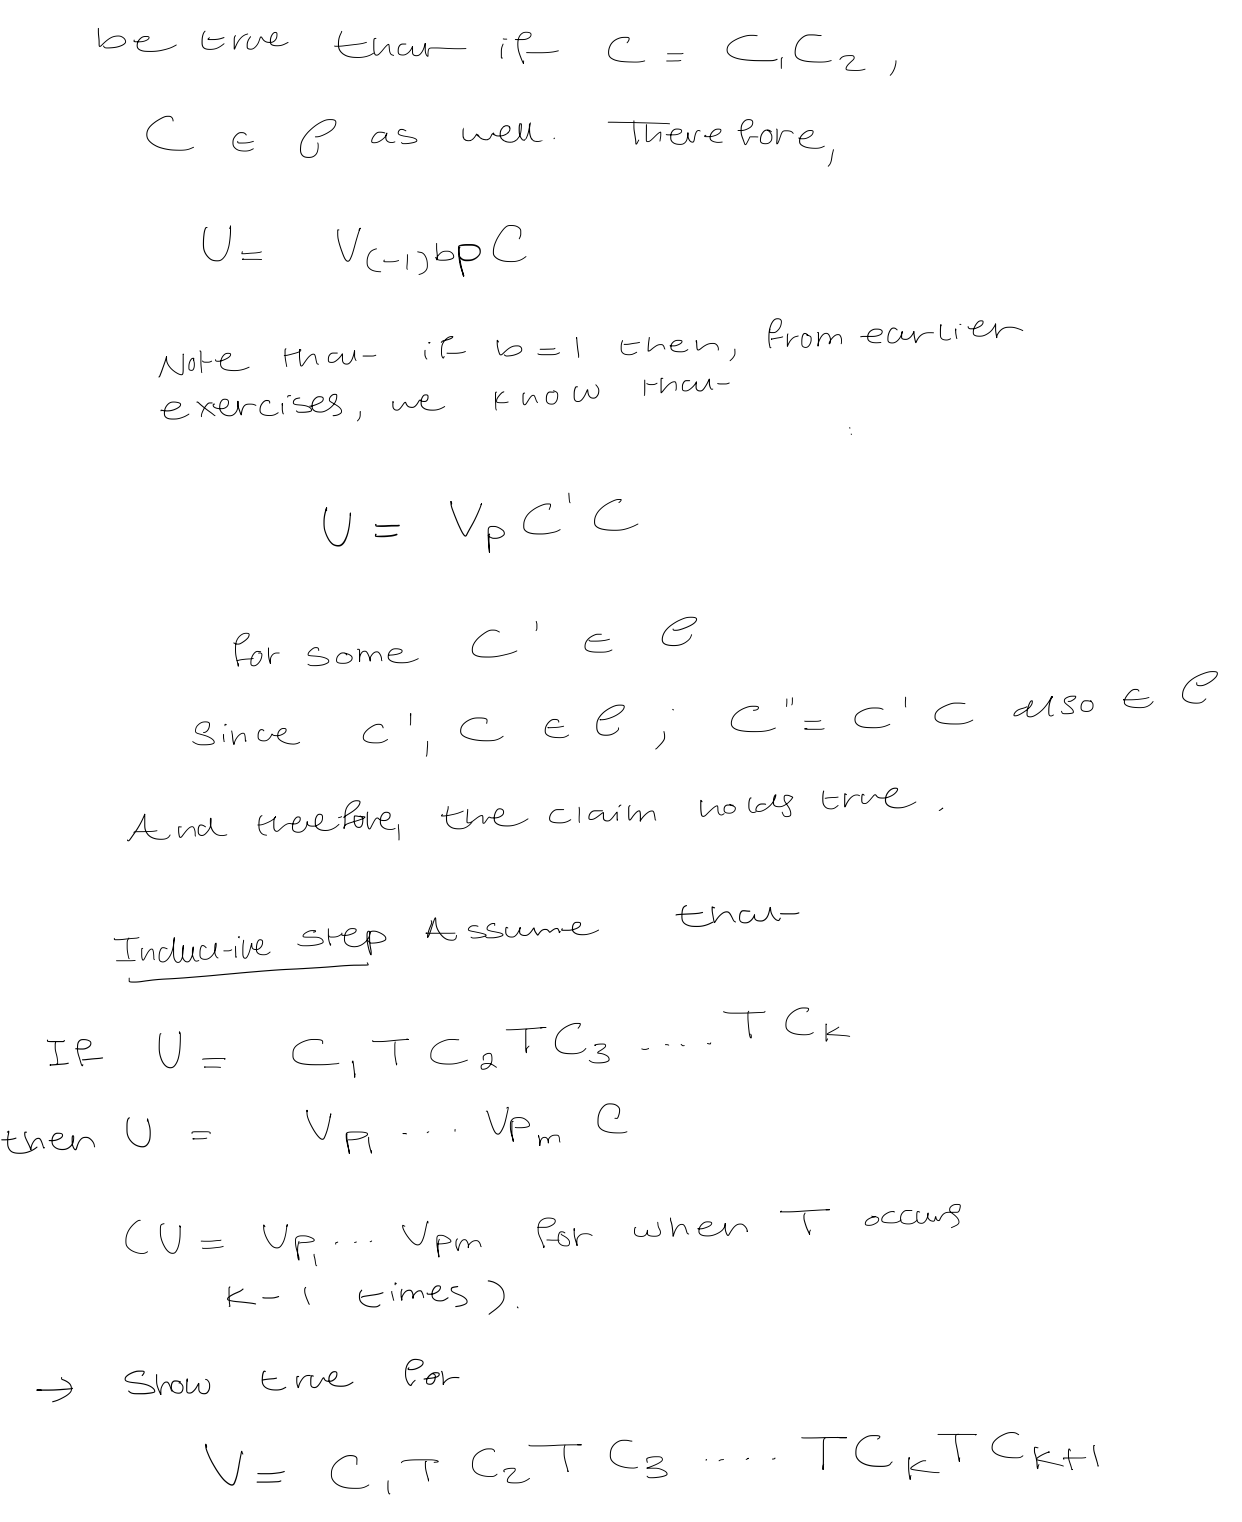 be true that if C = C₁C₂,
C ∈ 𝒞 as well. Therefore,
U = V₍₋₁₎bp C
Note that if b=1 then, from earlier
exercises, we know that
U = Vₚ C' C
for some C' ∈ 𝒞
Since C', C ∈ 𝒞; C''= C' C also ∈ 𝒞
And therefore, the claim holds true.
Inductive step Assume that
If U = C₁ T C₂ T C₃ ..... T Cₖ
then U = V_P₁ ... V_Pₘ C
(U = V_P₁ ... V_Pₘ for when T occurs
k-1 times).
→ Show true for
V = C₁ T C₂ T C₃ ..... T Cₖ T Cₖ₊₁